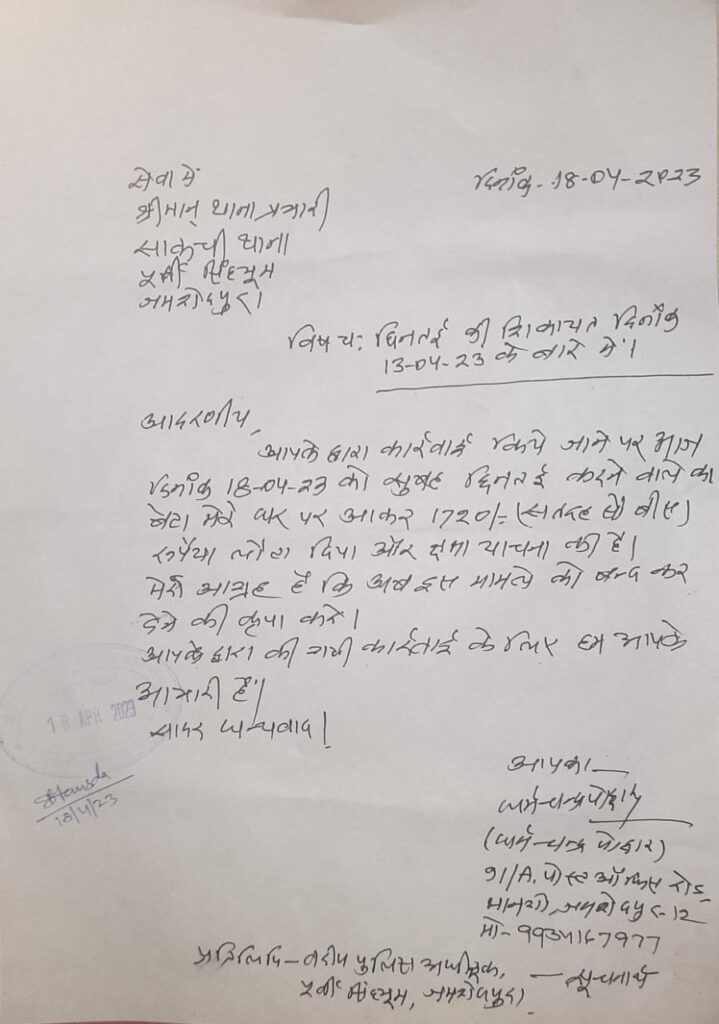 सेवा में
दिनाँक - 18-04-2023
श्रीमान् थाना प्रभारी
साकची थाना
पूर्वी सिंहभूम
जमशेदपुर।
विषय: छिनतई की शिकायत दिनाँक
13-04-23 के बारे में।
आदरणीय,
आपके द्वारा कार्रवाई किये जाने पर आज
दिनाँक 18-04-23 को सुबह छिनतई करने वाले का
बेटा मेरे घर पर आकर 1720/= (सतरह सौ बीस)
रूपैया लौटा दिया और क्षमा याचना की है।
मेरी आग्रह है कि अब इस मामले को बन्द कर
देने की कृपा करें।
आपके द्वारा की गयी कार्रवाई के लिए हम आपके
आभारी हैं।
सादर धन्यवाद।
18 APR 2023
18/4/23
आपका
धर्मचन्द्र पोद्दार
(धर्म चन्द्र पोद्दार)
91/A, पोस्ट ऑफिस रोड,
मानगो, जमशेदपुर-12
मो-
प्रतिलिपि - वरीय पुलिस अधीक्षक,
पूर्वी सिंहभूम, जमशेदपुर। — सूचनार्थ